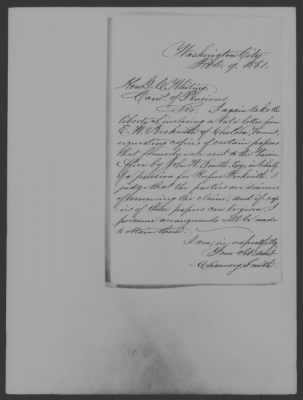 Washington City
Feb. 9, 1861.
Hon. G. C. Whiting,
Com'r. of Pensions,
Sir. I again take the
liberty of inclosing a letter from
E. W. of Chelsea, Vermont,
requesting copies of certain papers
that formerly were sent to the Pension
Office by John W. Smith Esq. in behalf
of a pension for Rufus. I
judge that the parties are desirous
of renewing the claim, and if cop-
ies of these papers can be given, I
presume arrangements will be made
to obtain them.
I am, sir, respectfully
Your obt. servt
Chauncey Smith.